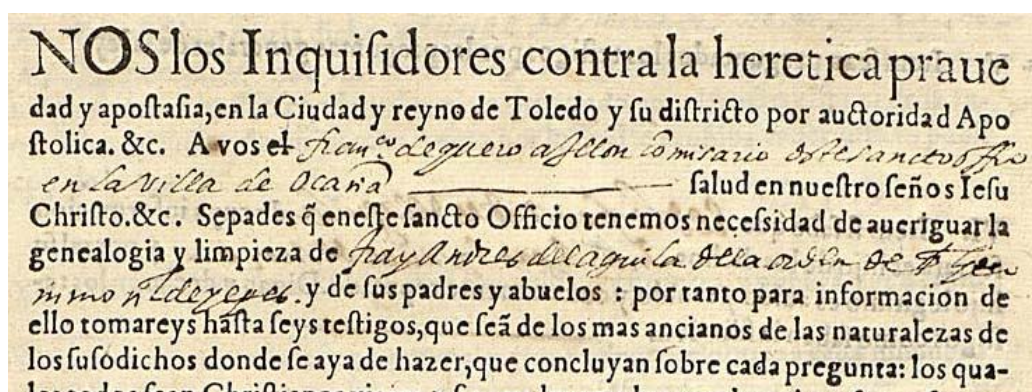 NOS los Inquiſidores contra la heretica praue
dad y apoſtaſia, en la Ciudad y reyno de Toledo y ſu diſtricto por auctoridad Apo
ſtolica. &c. A vos el fran^co de comisario deste sancto offio
en la Villa de Ocaña ſalud en nueſtro ſeños Ieſu
Chriſto.&c. Sepades q̃ eneſte ſancto Officio tenemos neceſsidad de aueriguar la
genealogia y limpieza de fray Andres del aguila de la orden de
de yepes. y de ſus padres y abuelos : por tanto para informacion de
ello tomareys haſta ſeys teſtigos, que ſeã de los mas ancianos de las naturalezas de
los ſuſodichos donde ſe aya de hazer, que concluyan ſobre cada pregunta: los qua-